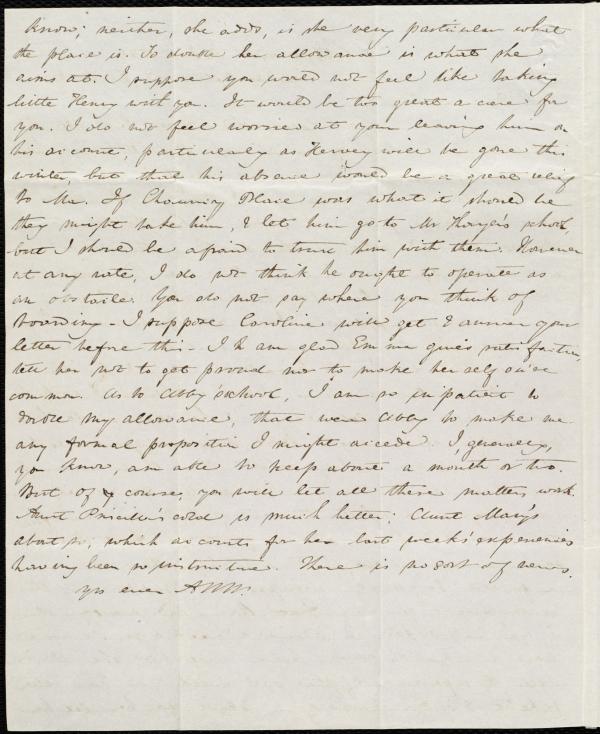 know; neither, she adds, is she very particular what
the place is. To double her allowance is what she
aims at. I suppose you would not feel like taking
little Henry with you. It would be too great a care for
you. I do not feel worried at your leaving him on
his account, particularly as Hervey will be gone this
winter, but that his absence would be a great relief
to Ma. If Chauncy Place was what it should be
they might take him, & let him go to Mr Thayer's school,
but I should be afraid to trust him with them. However
at any rate, I do not think he ought to operate as
an obstacle. You do not say where you think of
boarding - I suppose Caroline will get & answer your
letter before this - I am glad Emma gives satisfaction,
tell her not to get proud nor to make herself
common. As to Abby's school, I am so impatient to
double my allowance, that were Abby to make me
any formal proposition I might accede. I generally,
you know, am able to keep about a month or two.
But of course, you will let all these matters work.
Aunt Priscilla's cold is much better; Aunt Mary's
about so, which accounts for her last week's experiences
having been so instructive. There is no sort of news.
yrs ever AWW.